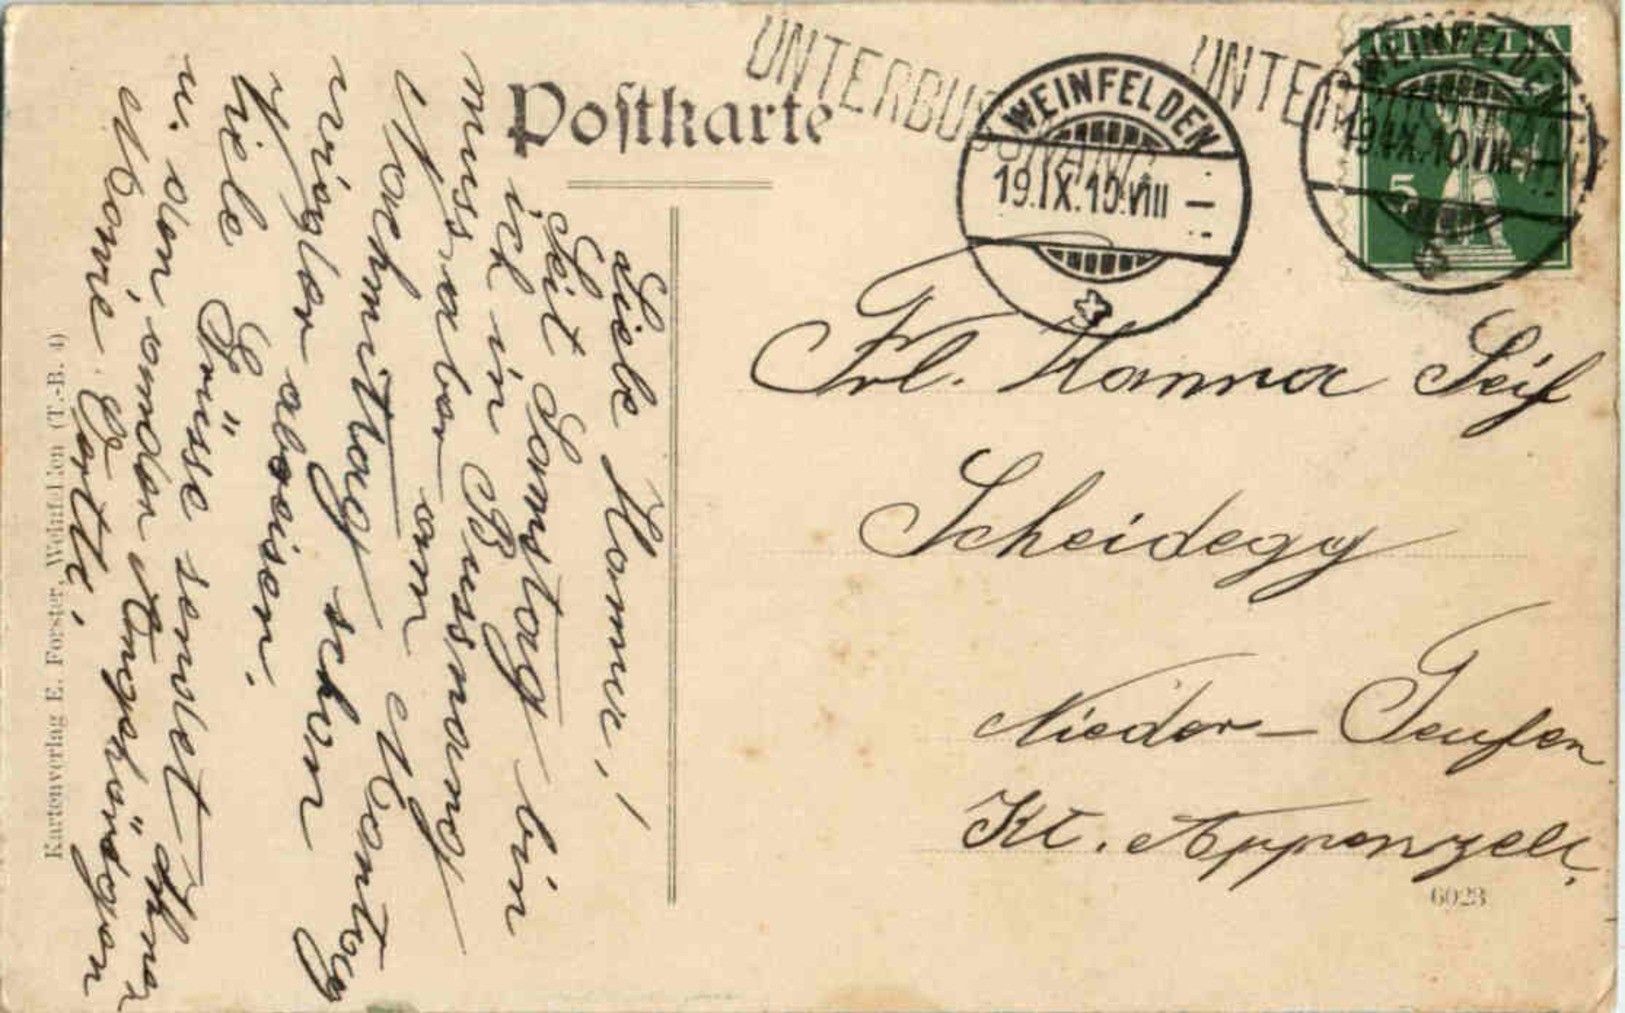 Postkarte
UNTERBUSSNANG
WEINFELDEN
19.IX.10.VIII
UNTER
WEINFELDEN
19.IX.10.VIII
5
Liebe Hanna!
Seit Samstag bin
ich in Bussnang
muss aber am Montag
Nachmittag schon
wieder abreisen.
Viele Grüsse sendet Ihnen
u. den andern Angehörigen
Marie
Frl. Hanna Seif
Scheidegg
Nieder-Teufen
Kt. Appenzell.
6023
Kartenverlag E. Forster, Weinfelden (T.-B. 4)